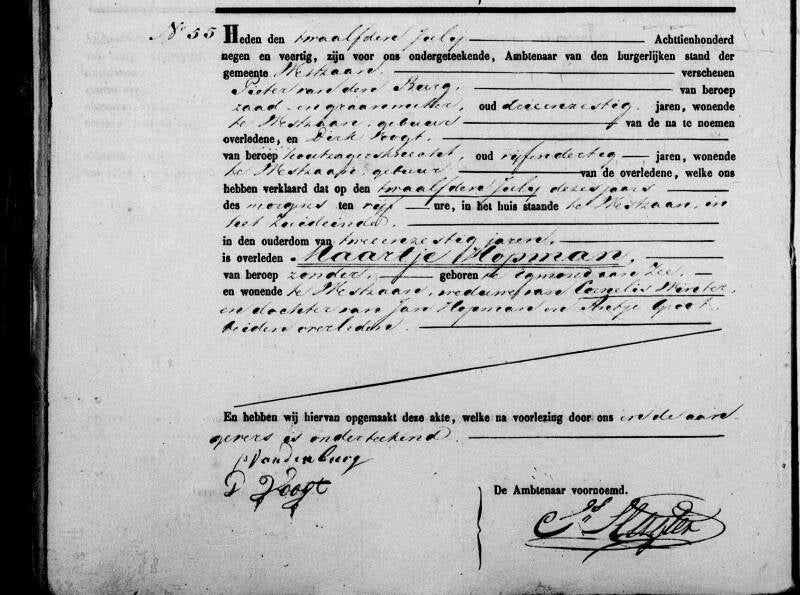 No 55 Heden den twaalfden july Achttienhonderd
negen en veertig, zijn voor ons ondergeteekende, Ambtenaar van den burgerlijken stand der
gemeente Westzaan verschenen
Pieter van den Burg, van beroep
zaad- en graanmeter, oud drieenzestig jaren, wonende
te Westzaan, gebuur van de na te noemen
overledene, en Dirk Voogt,
van beroep houtzagersknecht, oud vijfendertig jaren, wonende
te Westzaan, gebuur van de overledene, welke ons
hebben verklaard dat op den twaalfden july dezes jaars
des morgens ten vijf ure, in het huis staande te Westzaan, in
het Zuideinde,
in den ouderdom van tweeenzestig jaren,
is overleden Maartje Hopman,
van beroep zonder, geboren te Egmond aan Zee,
en wonende te Westzaan, weduwe van Cornelis Winter,
en dochter van Jan Hopman en Antje Groot,
beiden overleden.
En hebben wij hiervan opgemaakt deze akte, welke na voorlezing door ons en de aan-
gevers is onderteekend.
P Vandenburg
D Voogt
De Ambtenaar voornoemd.